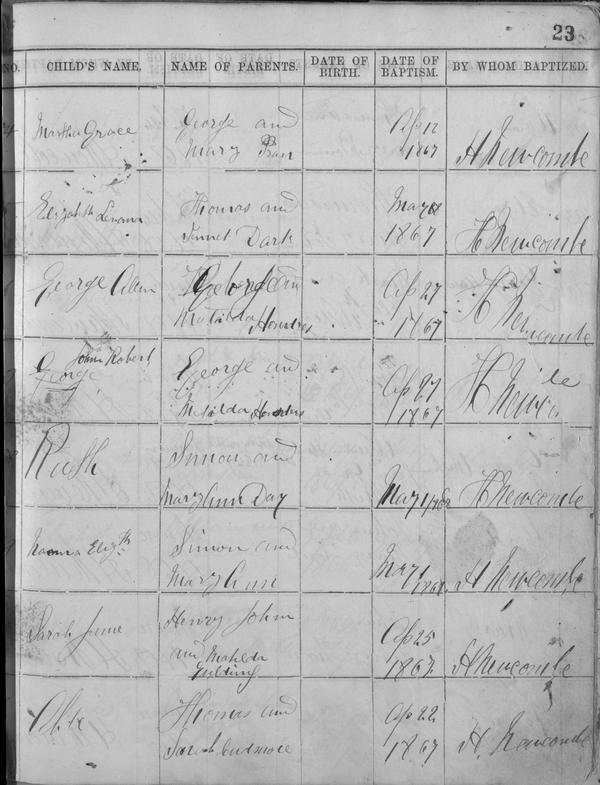 23
NO. CHILD'S NAME. NAME OF PARENTS. DATE OF BIRTH. DATE OF BAPTISM. BY WHOM BAPTIZED.
Martha Grace
George and
Mary
Ap 12
1867
H Newcombe
Elizabeth
Thomas and
Dark
May
1867
H Newcombe
George
Matilda
Ap 27
1867
H Newcombe
John Robert
George
George and
Matilda
Ap 27
1867
H
Ruth
Simon and
Mary Ann Day
May 1
H Newcombe
Eliz.th
Simon and
Mary Ann
May 1
H Newcombe
Sarah Jane
Henry John
and Matilda
Ap 25
1867
H Newcombe
Thomas and
Sarah Cudmore
Ap 22
1867
H. Newcombe